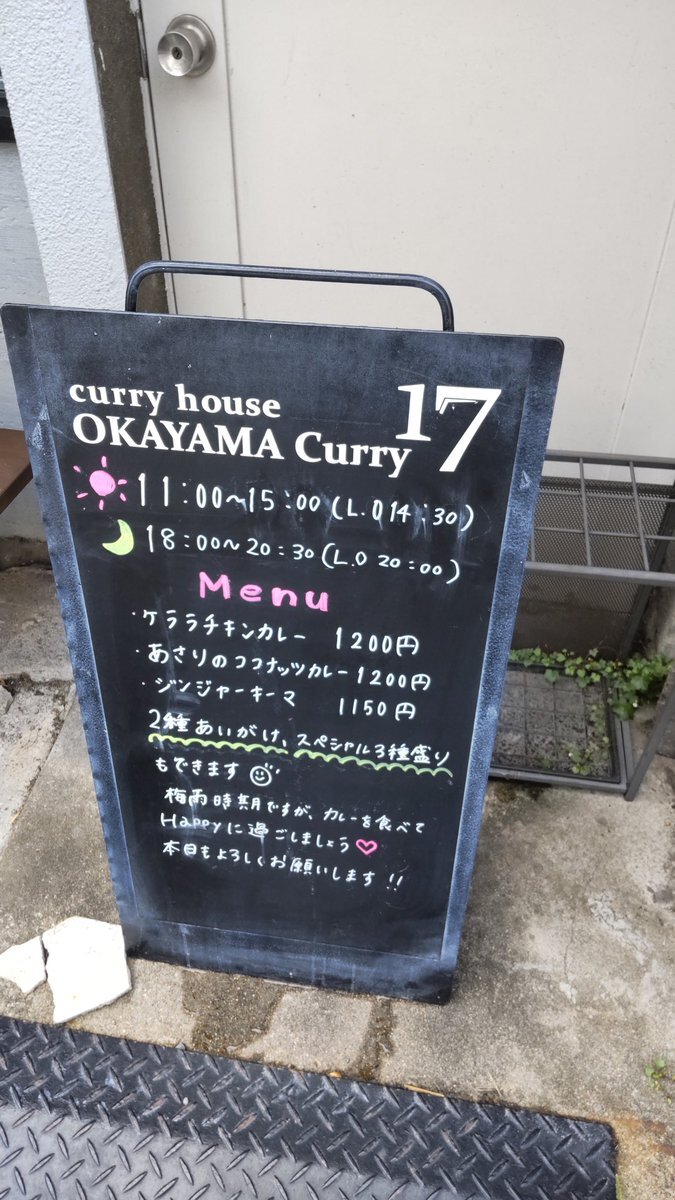 curry house
OKAYAMA Curry 17
11:00~15:00 (L.O 14:30)
18:00~20:30 (L.O 20:00)
Menu
・ケララチキンカレー 1200円
・あさりのココナッツカレー 1200円
・ジンジャーキーマ 1150円
2種あいがけ、スペシャル3種盛り
もできます
梅雨時期ですが、カレーを食べて
Happyに過ごしましょう♡
本日もよろしくお願いします!!